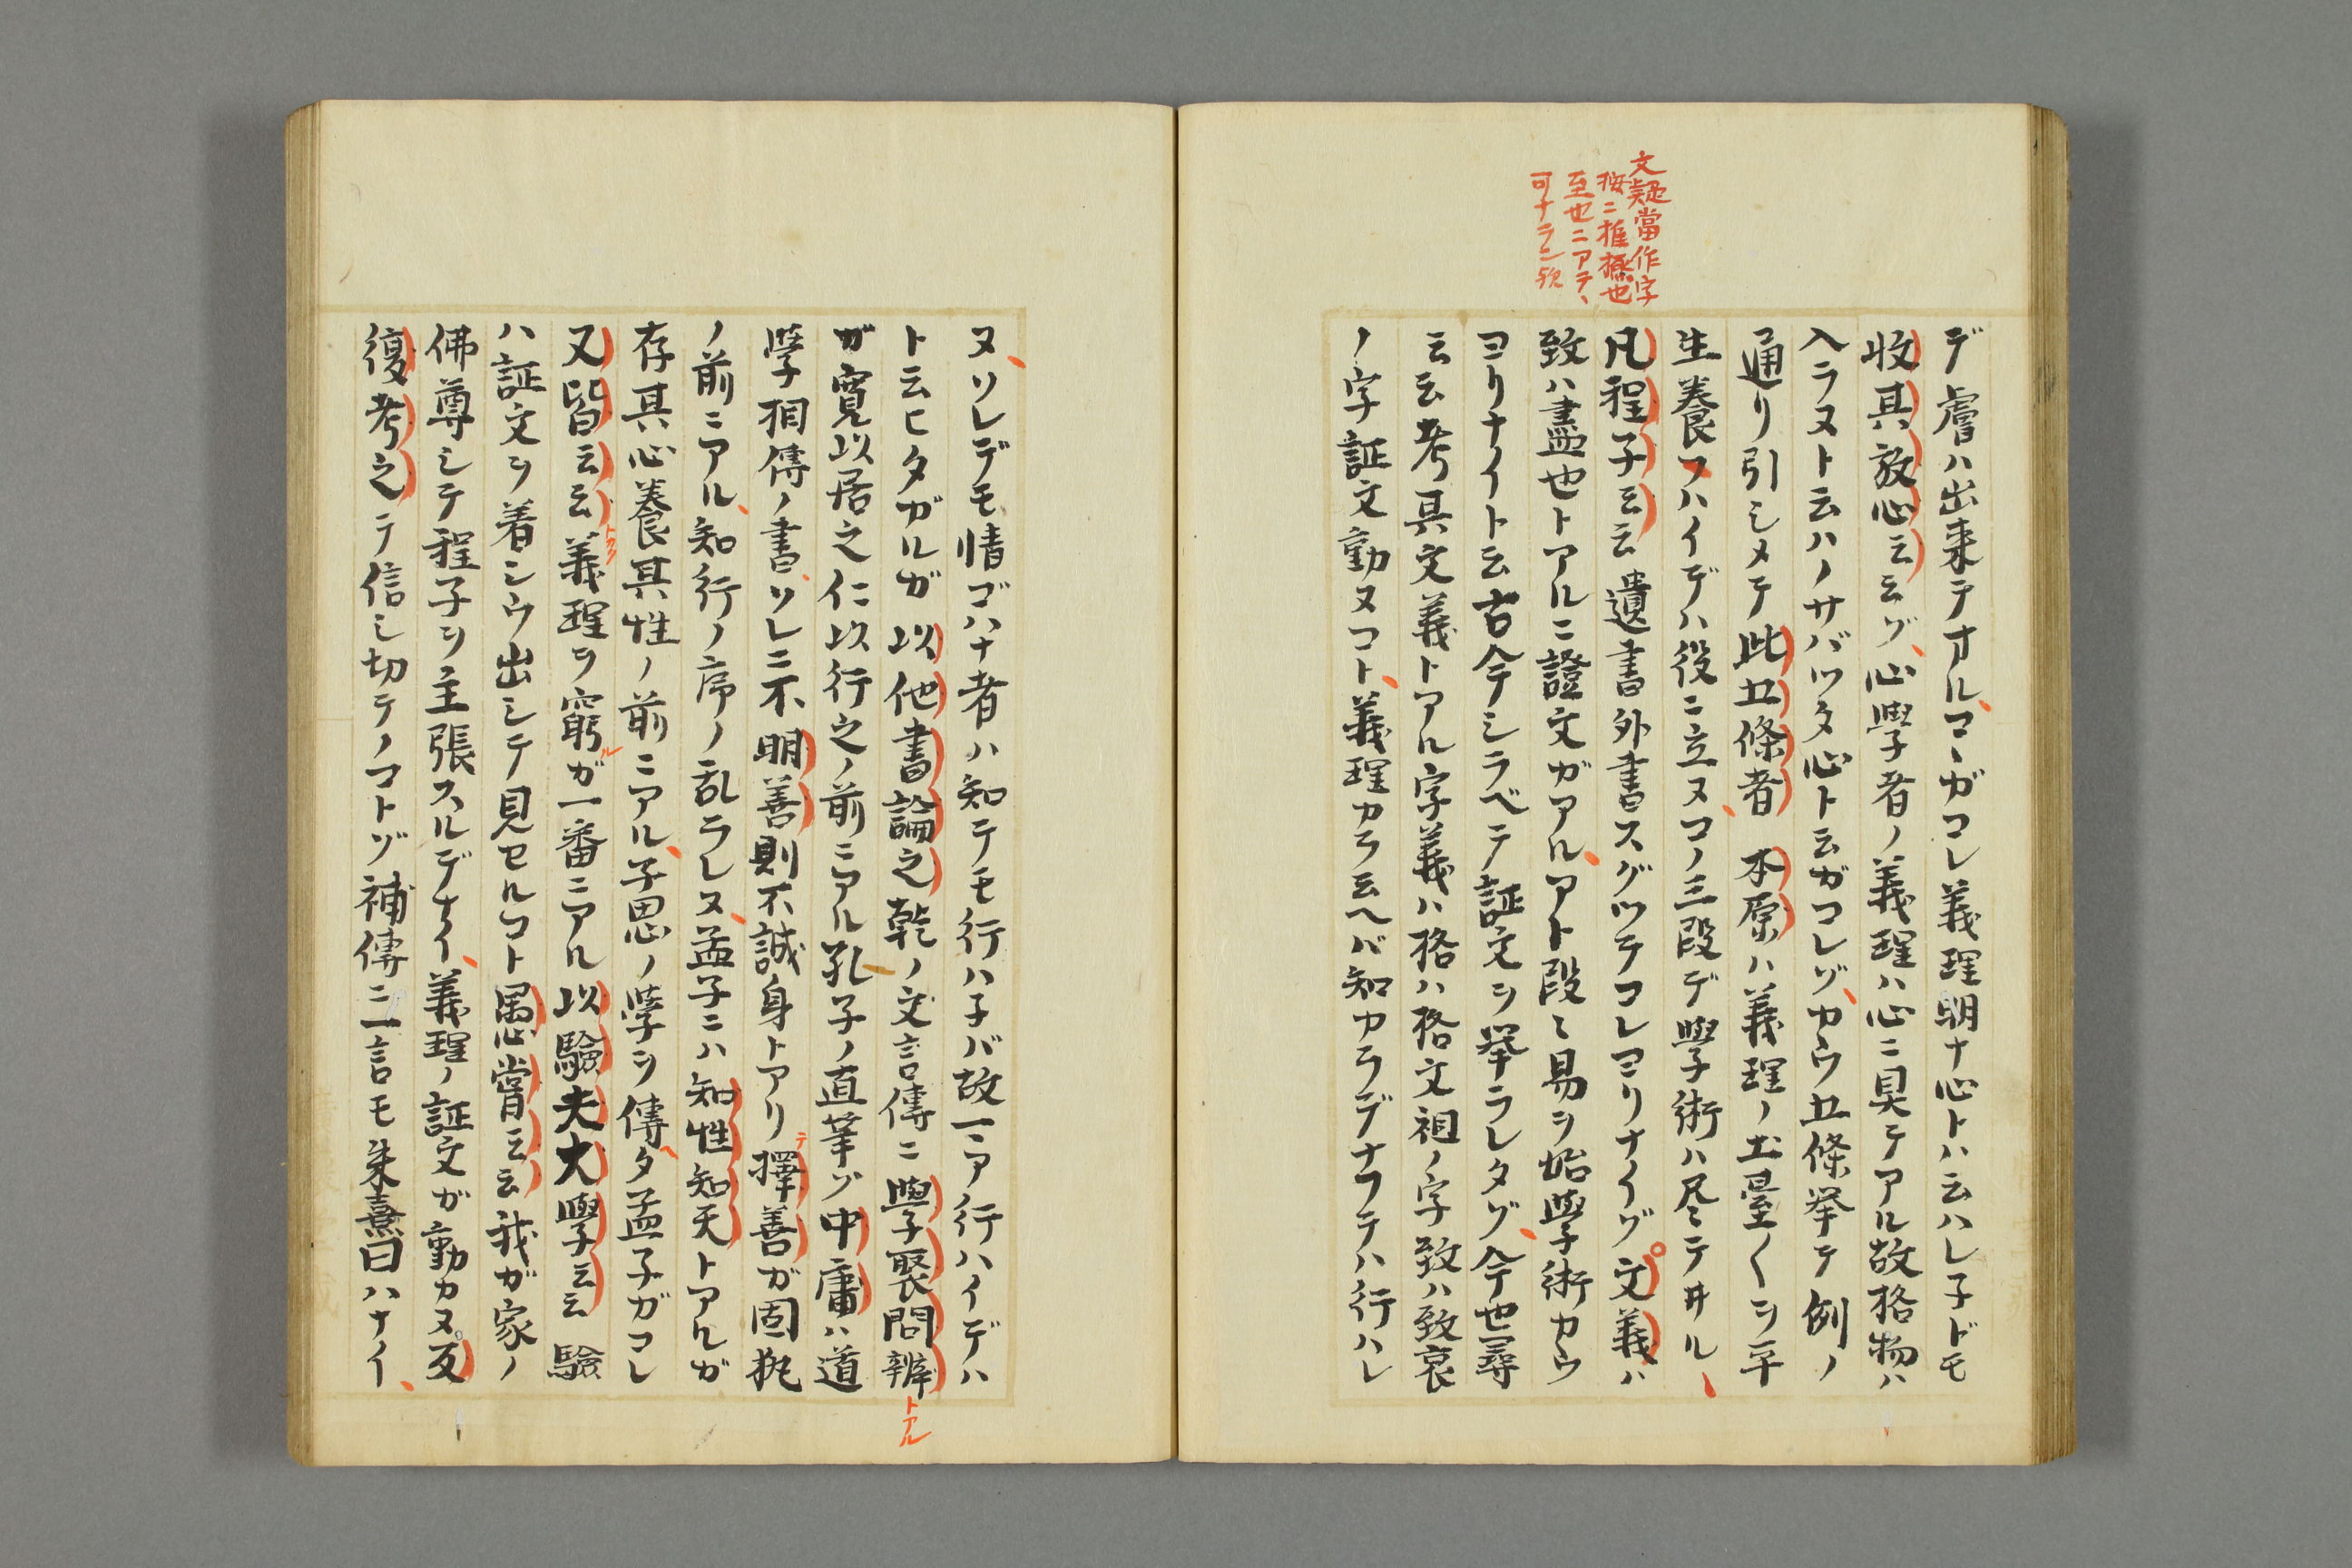 文疑當作字
按ニ推極也
至也ニアテヽ
可ナラン歟
デ膚ハ出来テオルコヽガコレ義理明ナ心トハ云ハレ子ドモ
收其放心云云ヅ心學者ノ義理ハ心ニ具テアル故格物ハ
入ラヌト云ハノサバツタ心ト云ガコレゾカウ五條挙テ例ノ
通リ引シメテ此五條者本原ハ義理ノ土臺〱ヲ平
生養フハイデハ役ニ立ヌコノ三段デ學術ハ尽テ井ル
凡程子云云遺書外書スグツテコレヨリナイゾ文義ハ
致ハ盡也トアルニ證文ガアルアト段々易ヲ始學術カウ
ヨリナイト云古今シラベテ証文ヲ挙ラレタゾ今也尋
云云考其文義トアル字義ハ格ハ格文祖ノ字致ハ致哀
ノ字証文動ヌコト義理カラ云ヘバ知カラデナフテハ行ハレ
ヌソレデモ情ゴハナ者ハ知テモ行ハ子バ故一ニア行ハイデハ
ト云ヒタガルガ以他書論之乾ノ文言傳ニ學聚問辨トアル
ガ寛以居之仁以行之ノ前ニアル孔子ノ直筆ゾ中庸ハ道
學相傳ノ書ソレニ不明善則不誠身トアリテ擇善ガ固執
ノ前ニアル知行ノ序ノ乱ラレヌ孟子ニハ知性知天トアルガ
存其心養其性ノ前ニアル子思ノ學ヲ傳タ孟子ガコレ
又皆云云トカク義理ヲ窮ルガ一番ニアル以驗夫大學云云驗
ハ証文ヲ着シウ出シテ見セルコト愚嘗云云我ガ家ノ
佛尊シテ程子ヲ主張スルデナイ義理ノ証文ガ動カヌ反
復考之テ信シ切テノコトゾ補傳ニ一言モ朱熹曰ハナイ